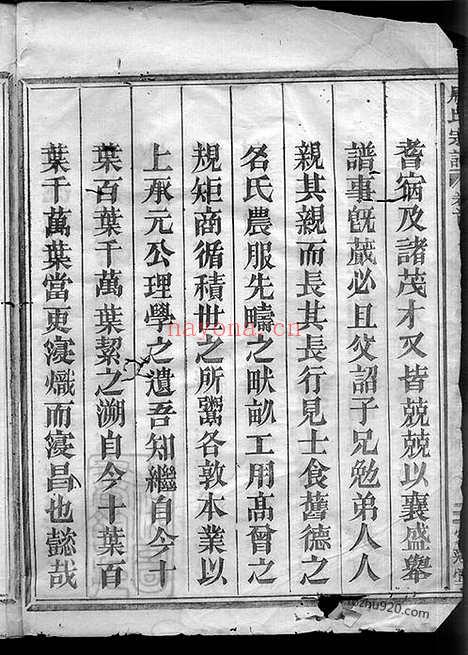 氏宗譜
耆宿及諸茂才又皆兢兢以襄盛舉
譜事旣蕆必且父詔子兄勉弟人人
親其親而長其長行見士食舊德之
名氏農服先疇之畎畝工用高曾之
規矩商循積世之所鬻各敦本業以
上承元公理學之遺吾知繼自今十
葉百葉千萬葉絜之溯自今十葉百
葉千萬葉當更寖熾而寖昌也懿哉
nayona.cn